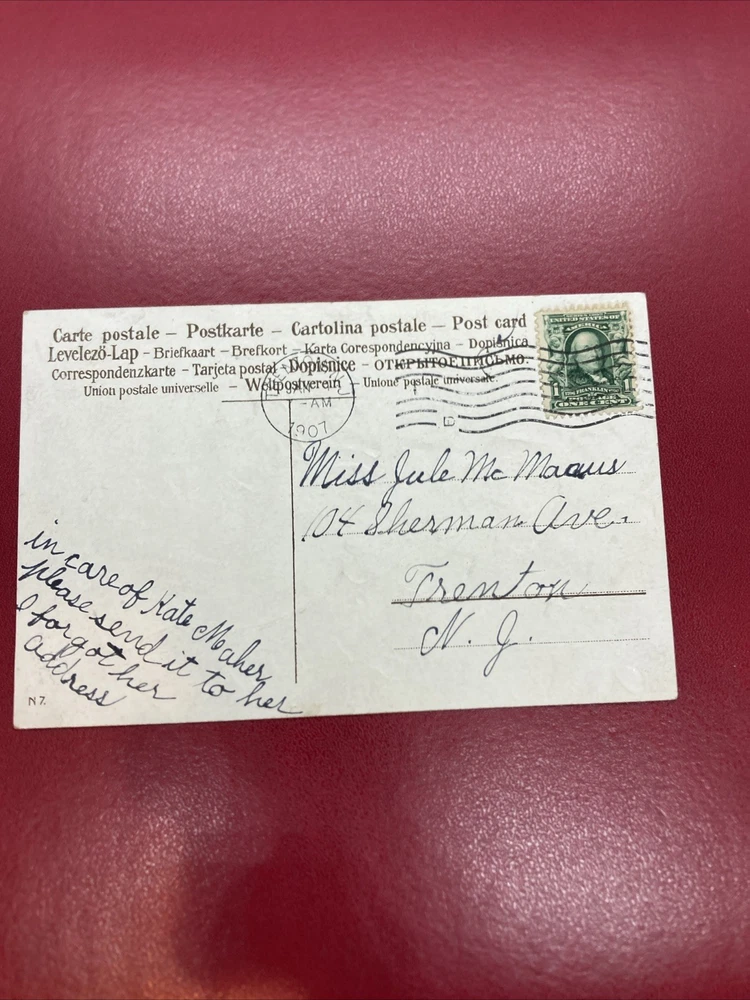 Carte postale – Postkarte – Cartolina postale – Post card
Levelező-Lap – Briefkaart – Brefkort – Karta Corespondencyjna – Dopisnica
Correspondenzkarte – Tarjeta postal – Dopisnice – ОТКРЫТОЕ ПИСЬМО.
Union postale universelle – Weltpostverein – Unione postale universale.
UNITED STATES OF
AMERICA
1 1
ONE CENT
JAN
- AM
1907
D
Miss Jule Mc Manus
104 Sherman Ave.
Trenton
N. J.
in care of Kate Maher
please send it to her
I forgot her
address
N 7.